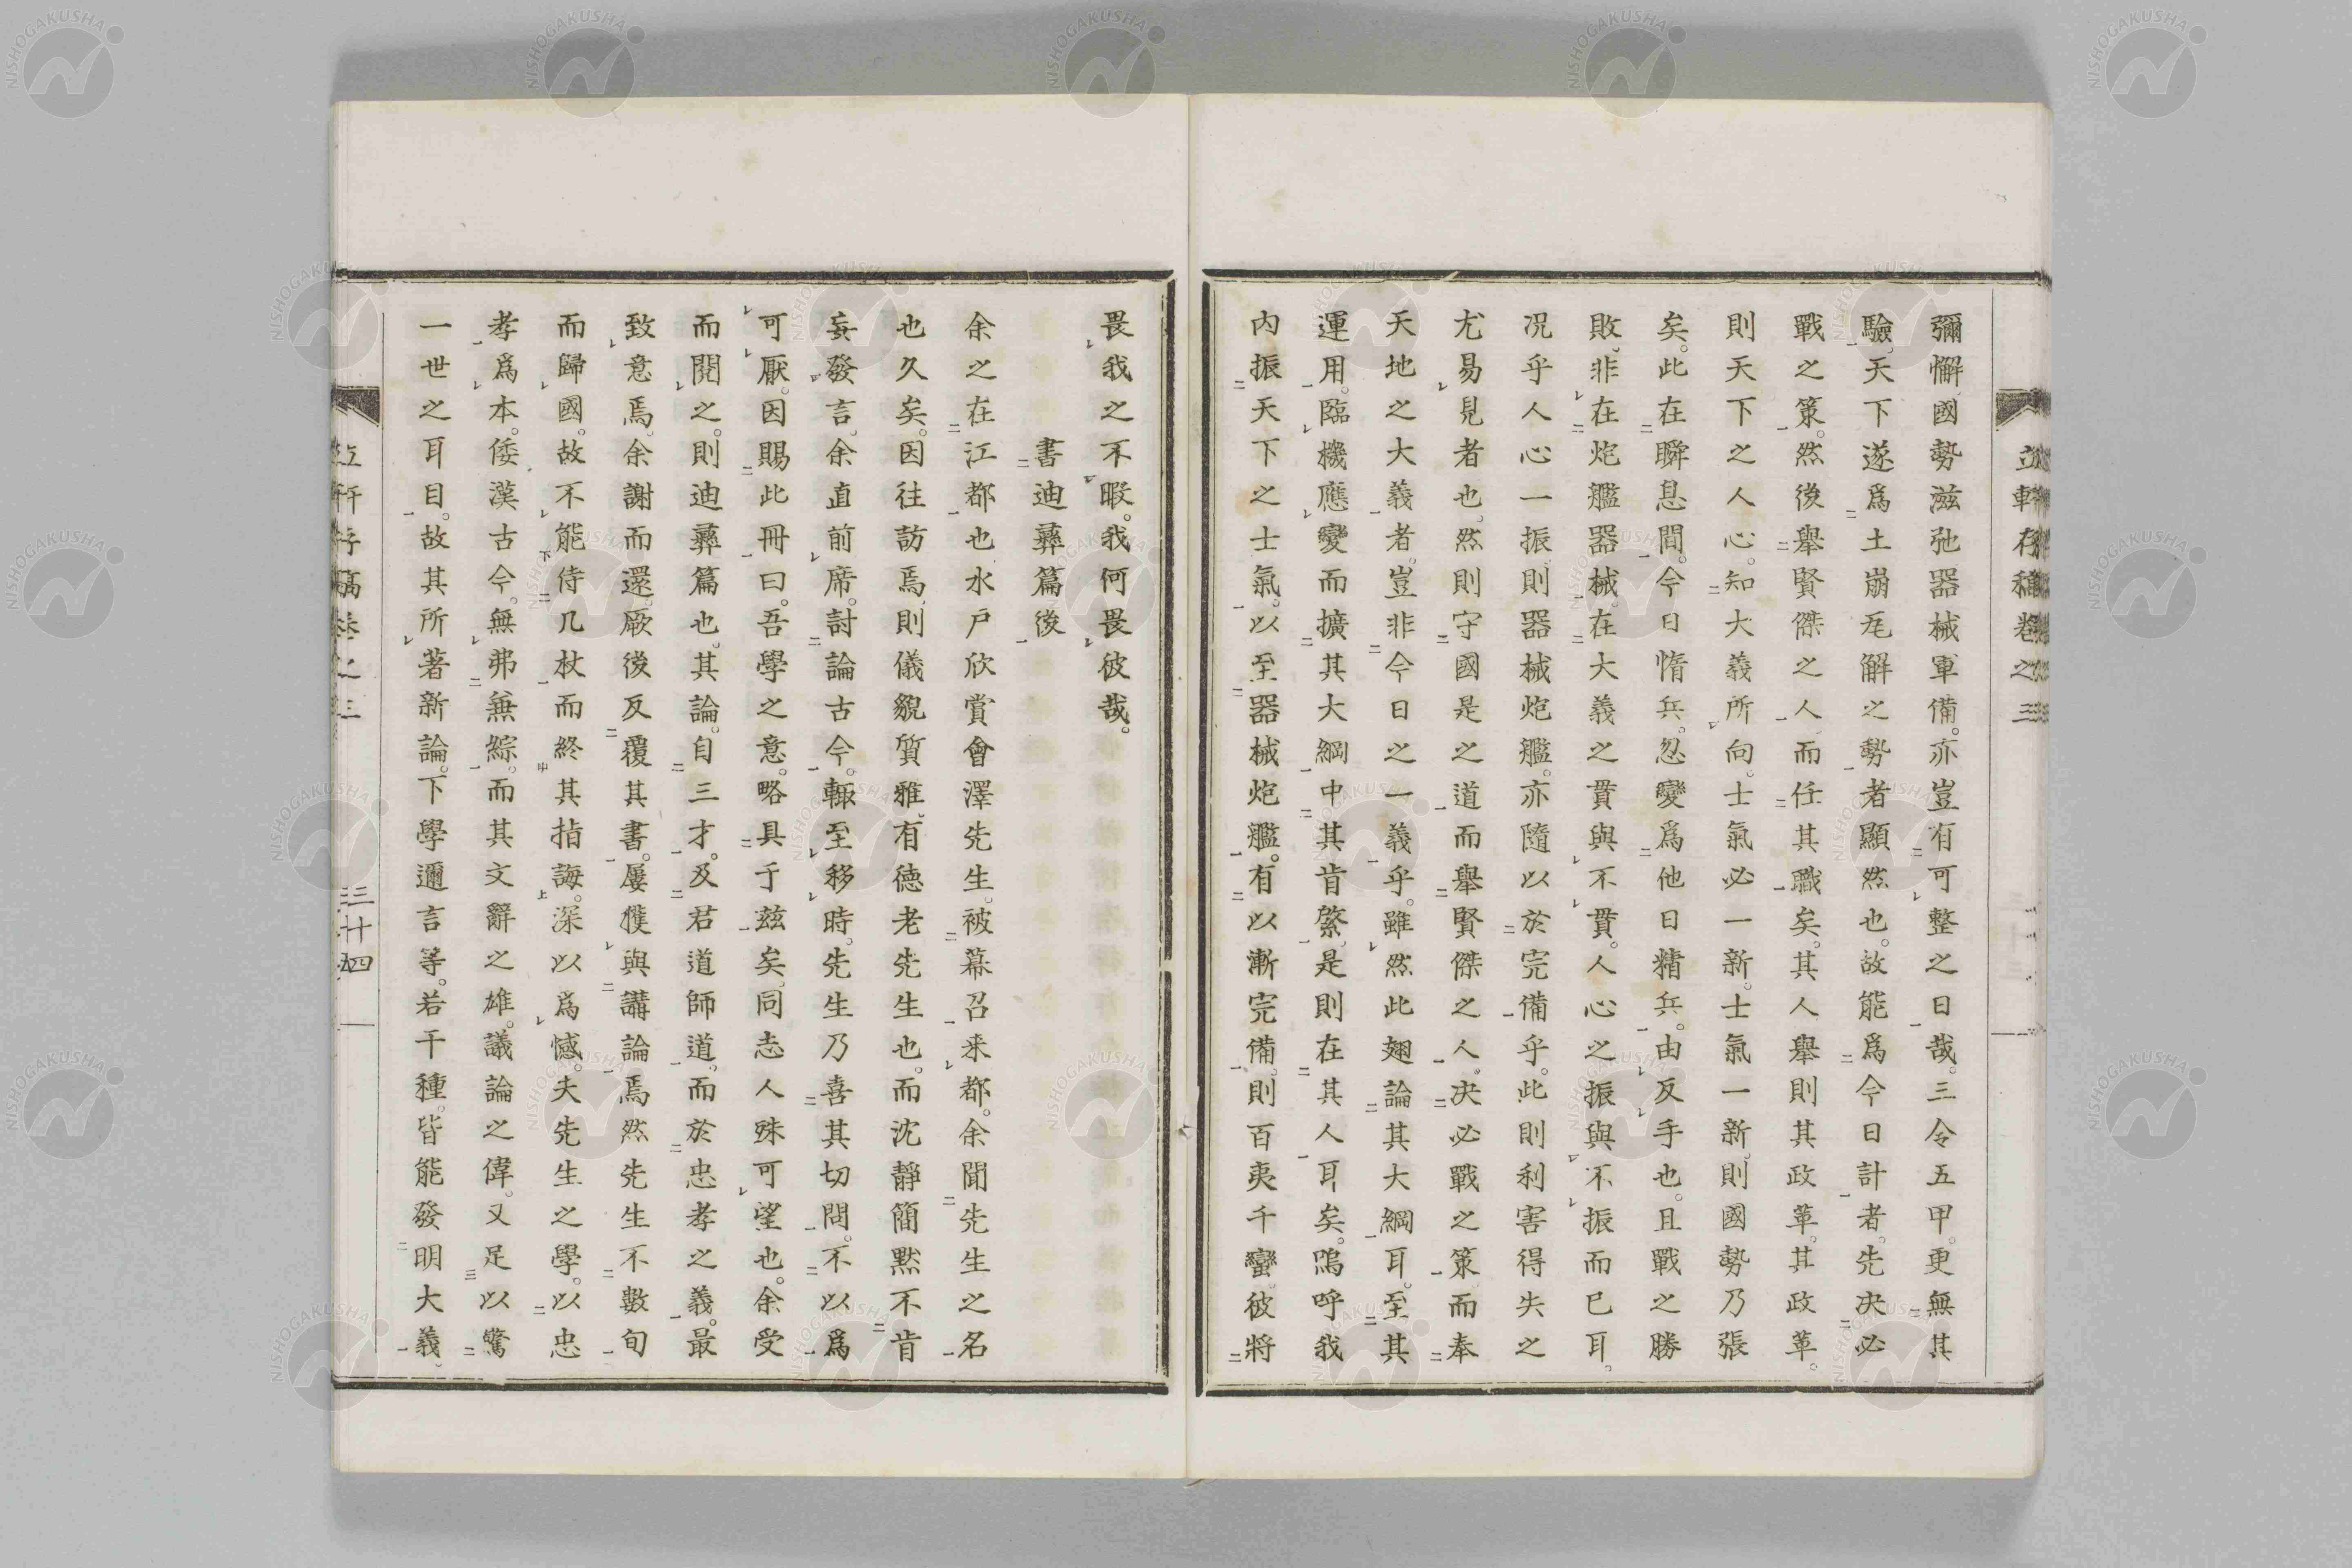 立軒存稿卷之三
彌懈國勢滋弛器械軍備。亦豈有可整之日哉。三令五甲。更無其
驗。天下遂爲土崩瓦解之勢者顯然也。故能爲今日計者。先决必
戰之策。然後擧賢傑之人。而任其職矣。其人擧則其政革。其政革。
則天下之人心。知大義所向。士氣必一新。士氣一新。則國勢乃張
矣。此在瞬息間。今日惰兵。忽變爲他日精兵。由反手也。且戰之勝
敗。非在炮艦器械。在大義之貫與不貫。人心之振與不振而已耳。
况乎人心一振。則器械炮艦。亦隨以於完備乎。此則利害得失之
尤易見者也。然則守國是之道。而擧賢傑之人。决必戰之策。而奉
天地之大義者。豈非今日之一義乎。雖然此翅論其大綱耳。至其
運用。臨機應變而擴其大綱中其肯綮。是則在其人耳矣。嗚呼我
内振天下之士氣。以至器械炮艦。有以漸完備。則百夷千蠻。彼將
畏我之不暇。我何畏彼哉。
書迪彝篇後
余之在江都也水戶欣賞會澤先生。被幕召来都。余聞先生之名
也久矣。因往訪焉。則儀貌質雅。有德老先生也。而沈靜簡默不肯
妄發言。余直前席。討論古今。輙至移時。先生乃喜其切問。不以爲
可厭。因賜此冊曰。吾學之意。略具于茲矣。同志人殊可望也。余受
而閱之。則迪彝篇也。其論。自三才。及君道師道。而於忠孝之義。最
致意焉。余謝而還。厥後反覆其書。屢獲與講論焉。然先生不數旬
而歸國。故不能侍几杖而終其指誨。深以爲憾。夫先生之學。以忠
孝爲本。倭漢古今。無弗兼綜。而其文辭之雄。議論之偉。又足以驚
一世之耳目。故其所著新論。下學邇言等。若干種。皆能發明大義
立軒存稿卷之三
三十四